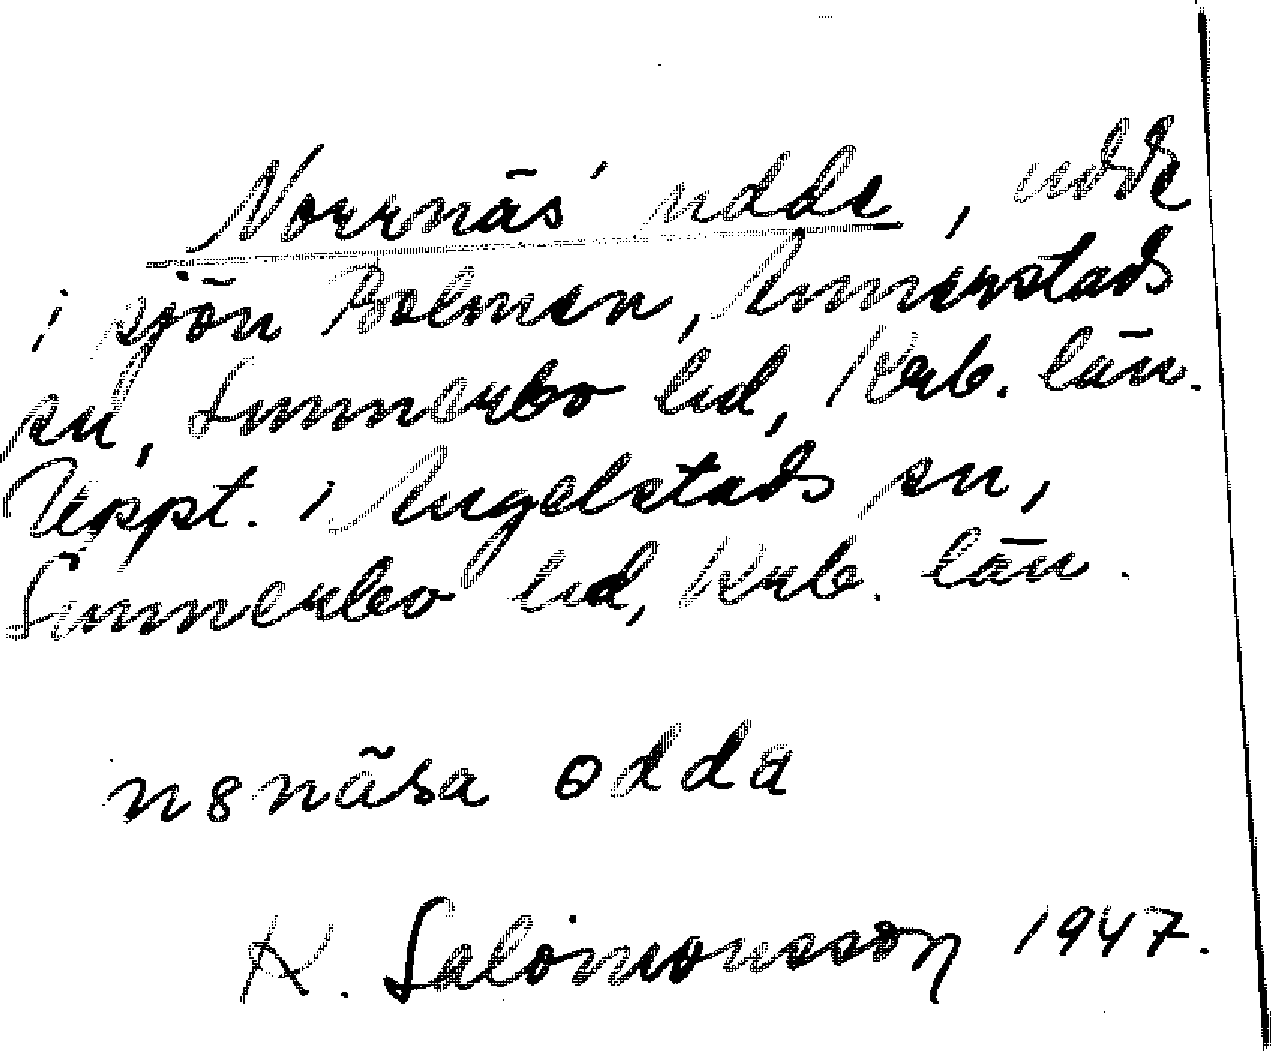 Norrnäs' udde, udde
i sjön Bolmen, Annerstads
sn, Sunnerbo hd, Krb. län.
Uppt. i Angelstads sn,
Sunnerbo hd, Krb. län.
n8näsa odda
K. Salomonsson 1947.